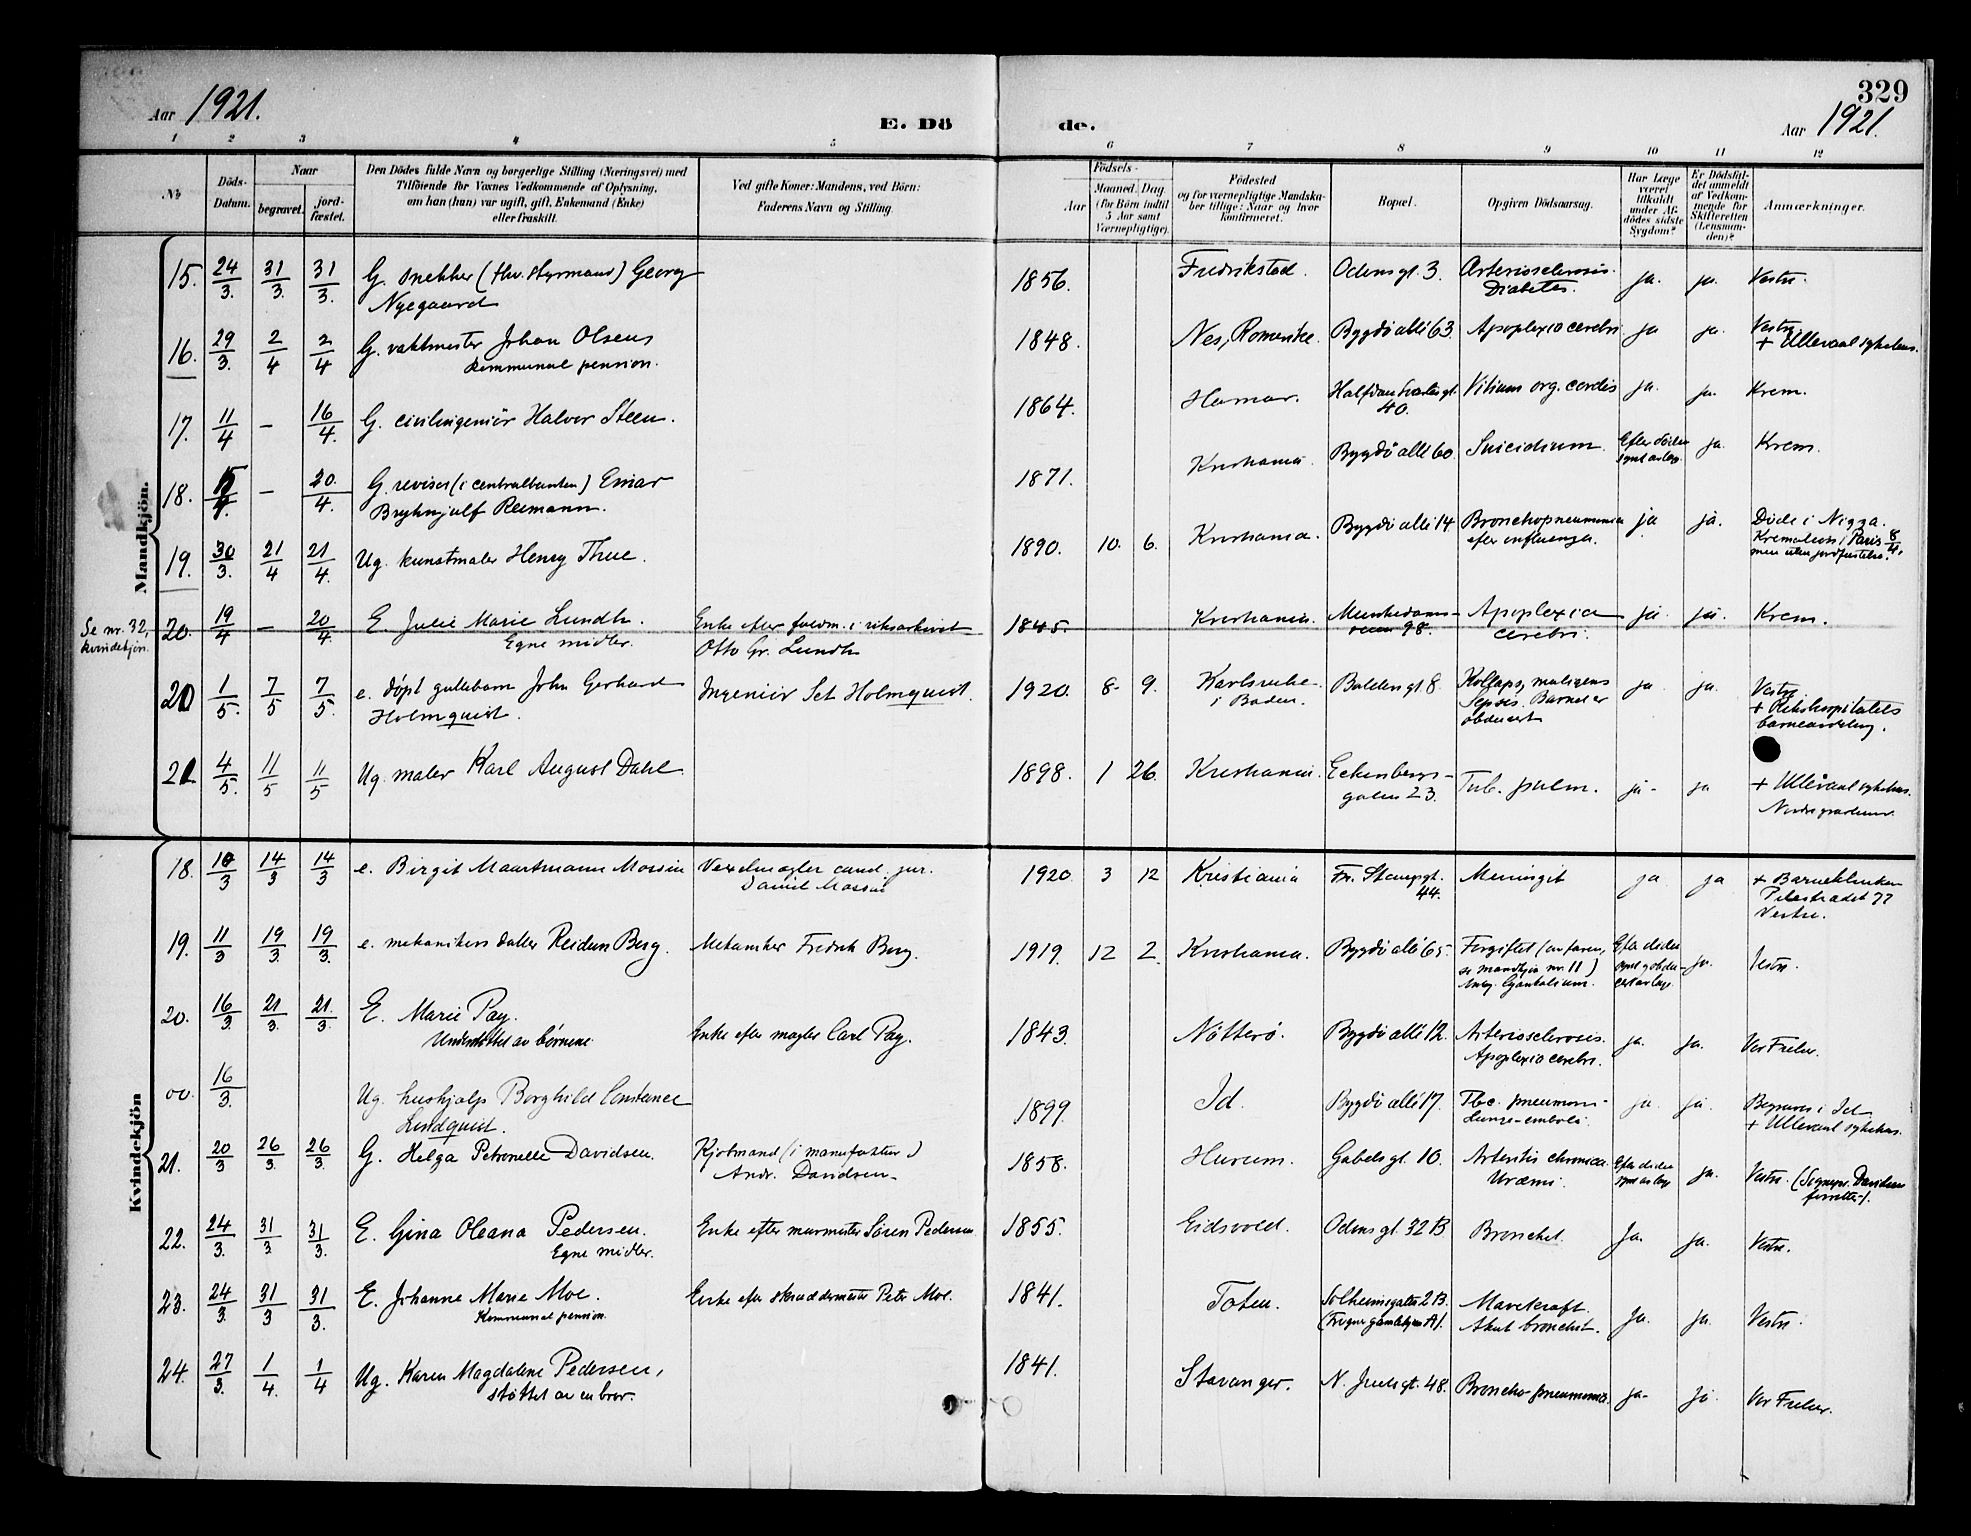 329
Aar 1921.
E. Dö
de.
Aar 1921.
1 2 3 4 5 6 7 8 9 10 11 12
No
Döds-Datum.
Naar
begravet.
jord-fæstet.
Den Dödes fulde Navn og borgerlige Stilling (Næringsvei) med
Tilföiende for Voxnes Vedkommende af Oplysning,
om han (hun) var ugift, gift, Enkemand (Enke)
eller fraskilt.
Ved gifte Koner: Mandens, ved Börn:
Faderens Navn og Stilling.
Födsels-
Aar
Maaned. Dag.
(for Börn indtil
5 Aar samt
Værnepligtige).
Födested
og for værnepligtige Mandska-
ber tillige: Naar og hvor
konfirmeret.
Bopæl.
Opgiven Dödsaarsag.
Har Læge
været
tilkaldt
under Af-
dödes sidste
Sygdom?
Er Dödsfal-
det anmeldt
af Vedkom-
mende for
Skifteretten
(Lensman-
den)?
Anmærkninger.
Mandkjön.
15. 24/3. 31/3. 31/3. G. snekker (fhv. styrmand) Georg
Nyegaard
1856. Fredrikstad. Odinsgt. 3. Arteriosclerosis.
Diabetes. ja. ja. Vestre.
16. 29/3. 2/4 2/4 G. vaktmester Johan Olsen
Kommunal pension.
1848. Nes, Romerike. Bygdö allé 63. Apoplexia cerebri ja ja. Vestre
+ Ullevaal sykehus.
17. 11/4 – 16/4. G. civilingeniör Halvor Steen.
1864. Hamar. Halfdan Svartes gt.
40. Vitium org. cordis ja. ja. Krem.
18. – 20./4. G. revisor (i centralbanken) Einar
Brynhjulf Reimann.
1871. Kristiania. Bygdö allé 60. Suicidium. Efter döden
synt av læge ja. Krem.
19. 30/3. 21/4 21/4. Ug. kunstmaler Henry Thue.
1890. 10. 6. Kristiania. Bygdö allé 14. Bronchopneumonia
efter influenza. ja ja. Döde i Nizza.
Kremation i Paris 8/4.
men uten jordfæstelse.
Se nr. 32,
kvindekjön.
20. 19/4 – 20/4 E. Julie Marie Lundh.
Egne midler.
Enke efter fuldm. i riksarkivet
Otto Gr. Lundh
1845. Kristiania. Munkedams-
veien 98. Apoplexia
cerebri. ja ja. Krem.
20 1/5. 7/5 7/5. e. döpt guttebarn John Gerhard
Holmquist.
Ingeniör Holmquist.
1920. 8. 9. Karlsruhe
i Baden. Baldersgt 8 Kollaps, malignens
Sepsis. Barnet er
obducert ja ja. Vestre
+ Rikshospitalets
barneavdeling.
21 4/5. 11/5 11/5 Ug. maler Karl August Dahl.
1898. 1 26. Kristiania. Eckersbergs-
gaten 23. Tub. pulm. ja ja + Ullevaal sykehus.
Nordre gravlund.
Kvindekjön
18. 10/3 14/3 14/3 e. Birgit Maartmann
Vexelmægler cand. jur.
Daniel
1920. 3 12 Kristiania Fr. Stangsgt.
44. Meningit ja ja + Barneklinikken
Pilestrædet 77
Vestre.
19. 11/3 19/3. 19/3. e. mekanikers datter Reidun Berg.
Mekaniker Fredrik Berg.
1919. 12 2. Kristiania. Bygdö allé 65. Forgiftet (av faren,
se mandkjön nr. 11)
Cyankalium. Efter döden
synt ja. Vestre.
20. 16/3 21/3. 21./3. E. Marie Pay.
Understöttet av börnene.
Enke efter mægler Carl Pay.
1843. Nötterö. Bygdö allé 12. Arteriosclerosis.
Apoplexia cerebri. ja. ja. Vor Frelser.
00. 16/3. Ug. hushjælp Borghild Constance
Lindquist.
1899. Id. Bygdö allé 17. Tbc. pneumoni-
Lunge-emboli. ja. ja. Begraves i Id.
+ Ullevaal sykehus.
21. 20/3 26/3. 26/3. G. Helga Petronelle Davidsen.
Kjöbmand (i manufaktur)
Andr. Davidsen
1858. Hurum. Gabelsgt. 10. Arteritis chronica.
Uræmi. Efter döden
synt av læge ja. Vestre. (Sognepr. Davidsen
forrettet).
22. 24/3. 31/3 31/3. E. Gina Oleana Pedersen.
Egne midler.
Enke efter murmester Sören Pedersen
1855. Eidsvold. Odinsgt. 32 B Bronchit. Ja. ja. Vestre.
23. 24/3 31/3 31/3. E. Johanne Marie Moe.
Kommunal pension.
Enke efter skræddermester Peter Moe.
1841. Toten. Solheimsgaten 2 B.
(Frogner gamlehjem A). Mavekræft.
Akut bronchit. Ja. ja. Vestre.
24. 27/3. 1/4. 1/4 Ug. Karen Magdalene Pedersen,
stöttet av en bror.
1841. Stavanger. N. Juels gt. 48. Broncho pneumonia ja- ja. Vor Frelser.